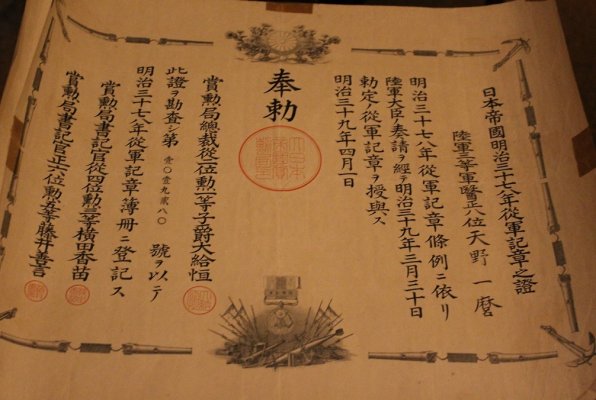 日本帝國明治三十七八年從軍記章之證
陸軍三等軍醫正八位天野一麿
明治三十七八年從軍記章條例ニ依リ
陸軍大臣ノ奏請ヲ經テ明治三十九年三月三十日
勅定ノ從軍記章ヲ授與ス
明治三十九年四月一日
奉勅
大日本帝國賞勳局印
賞勳局總裁從二位勲一等子爵大給恒
此證ヲ勘査シ第壹〇壹九貳八〇號ヲ以テ
明治三十七八年從軍記章簿册ニ登記ス
賞勳局書記官從四位勲三等横田香苗
賞勳局書記官正六位勲五等藤井善言